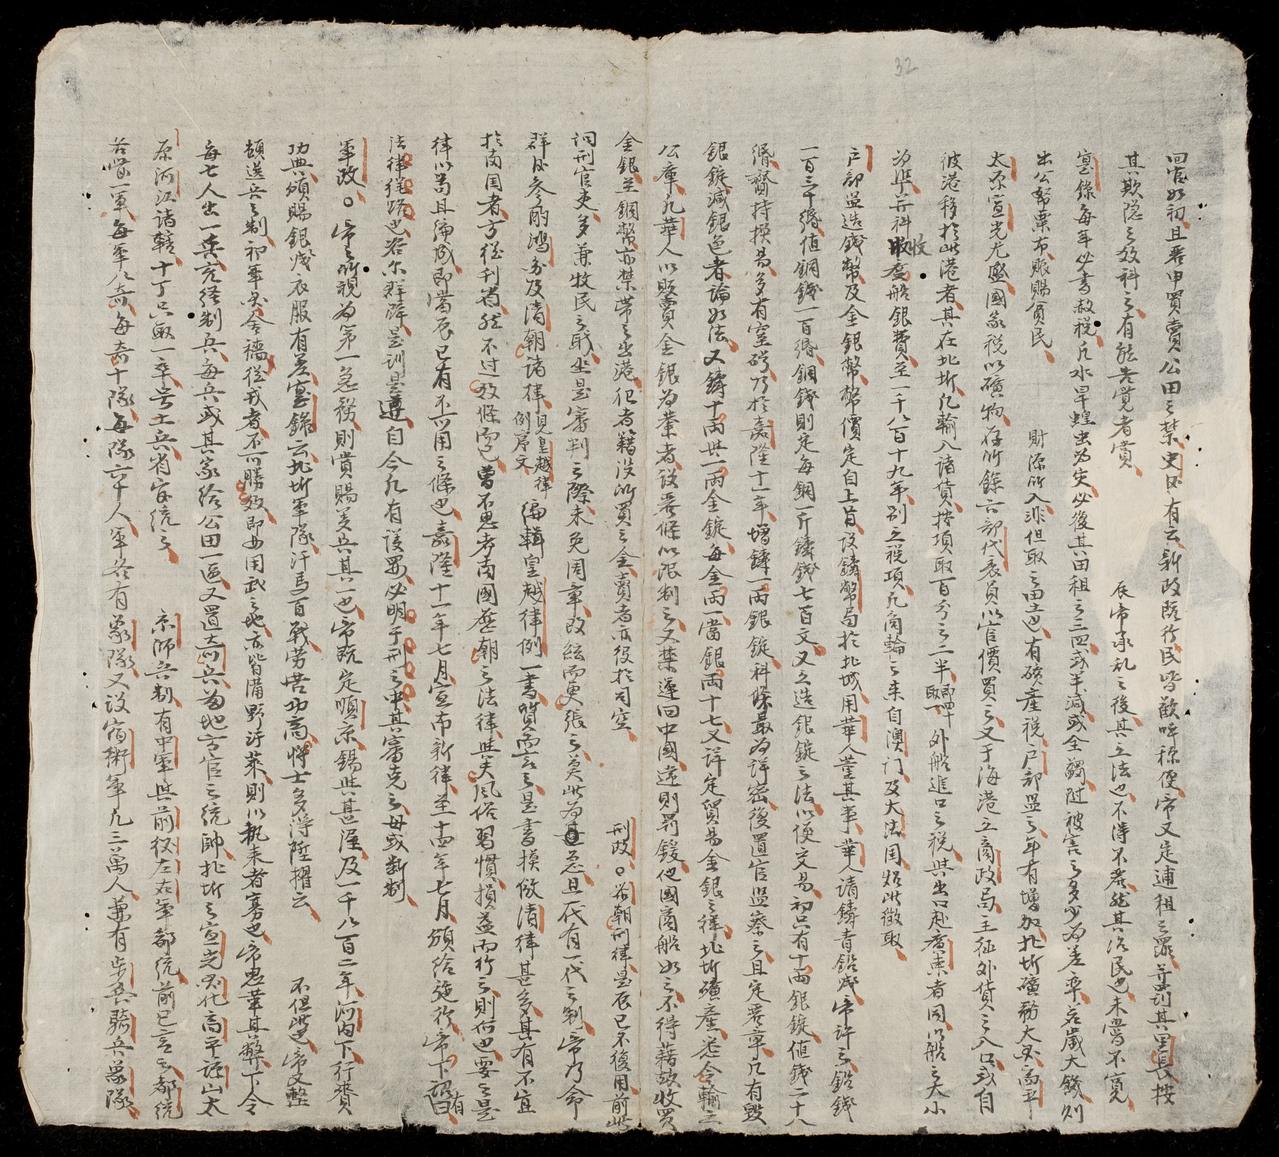 32
四官如初且君申買賣公田之禁史臣有云新政既行民皆歡呼稱便帝又定逋租之罪並罰其里長按
其欺隱之數科之有能告覺者賞 辰帝承亂之後其立法也不得不嚴然其治民也未嘗不寬
寔錄每年必書赦稅凡水旱蝗虫為灾必後其田租之三四或半減或全蠲隨被害之多少為差率若歲大饑則
出公帑粟布賑賜貧民 財源所入非但取之田土也有礦產稅戶部監之年有增加北圻礦務大如高平
太原宣光尤盛國家稅以礦物存所餘六部代表員以官價買之又于海港立商政局主征外貨之入口或自
彼港移於此港者其在北圻凡輸入諸貨按項取百分之二半 外船進口之稅與出口赴廣東者同以船之大小
為準並科收度船銀費至一千八百十九年別立稅項凡商輪之來自澳门及大法国炤此徵取
戶部監造錢幣及金銀幣幣價定自上旨設鑄幣局於北城用華人董其事華人請鑄青鉛錢帝許之鉛錢
一百三十緡值銅錢一百緡銅錢則定每銅一斤鑄錢七百文又立造銀錠之法以便交易初只有十兩銀錠值錢二十八
緡齎持換易多有窒碍乃於嘉隆十一年增鑄一兩銀錠科條最為詳密後置官監察之且定嚴章凡有毀
銀錠減銀色者論如法又鑄十兩與一兩金錠每金兩一當銀兩十七又詳定貿易金銀之律北圻礦產悉令輸之
公庫凡華人以販賣金銀為業者設嚴條以限制之又禁運回中國違則罰鍰他國商船如之不得藉故收買
金銀至銅幣亦禁帶之出港犯者籍没所買之金賣者亦役於司空 刑政。前朝刑律是辰已不復用前此
詞刑官吏多兼牧民之職坐是審判之際未免周章改絃而更張之莫此為急且一代有一代之制帝乃命
群臣參酌鴻分及清朝諸律見皇越律例序文編輯皇越律例一書質而言之是書模倣清律甚多其有不宜
於南国者方徑刊省然不过數條也曾不思考南國歷朝之法律與夫風俗習慣損益而行之則何也要之是
律以苟且编成即當辰已有不可用之條也嘉隆十一年七月宣布新律至十四年七月頒給施行帝下詔曰有
法律從踣也咨尔群僚是訓是遵自今凡有議罰必明于刑之中其審克之毋或断制
軍政。帝之所視為第一急務則賞賜養兵其一也帝既定順京錫與甚渥及一千八百二年河内下行賚
功典頒賜銀錢衣服有差寔錄云北圻軍隊汗馬百戰勞苦功高将士多得陞擢云 不但此也帝又整
頓选兵之制初軍卒舍穡從戎者不可勝数即如用武之地亦皆備野汙萊則以執耒者寡也帝思革其弊下令
每七人出一兵充經制兵每兵或其家給公田一區又置奇兵為地方官之統帥北圻之宣光如化高平諒山太
原河江諸轄十丁只取一卒号土兵省官統之 京師兵制有中軍與前後左右軍都統前已言之都統
各管一軍每軍五奇每奇十隊每隊六十人軍各有象隊又設宿衛軍凡三萬人兼有步兵騎兵象隊